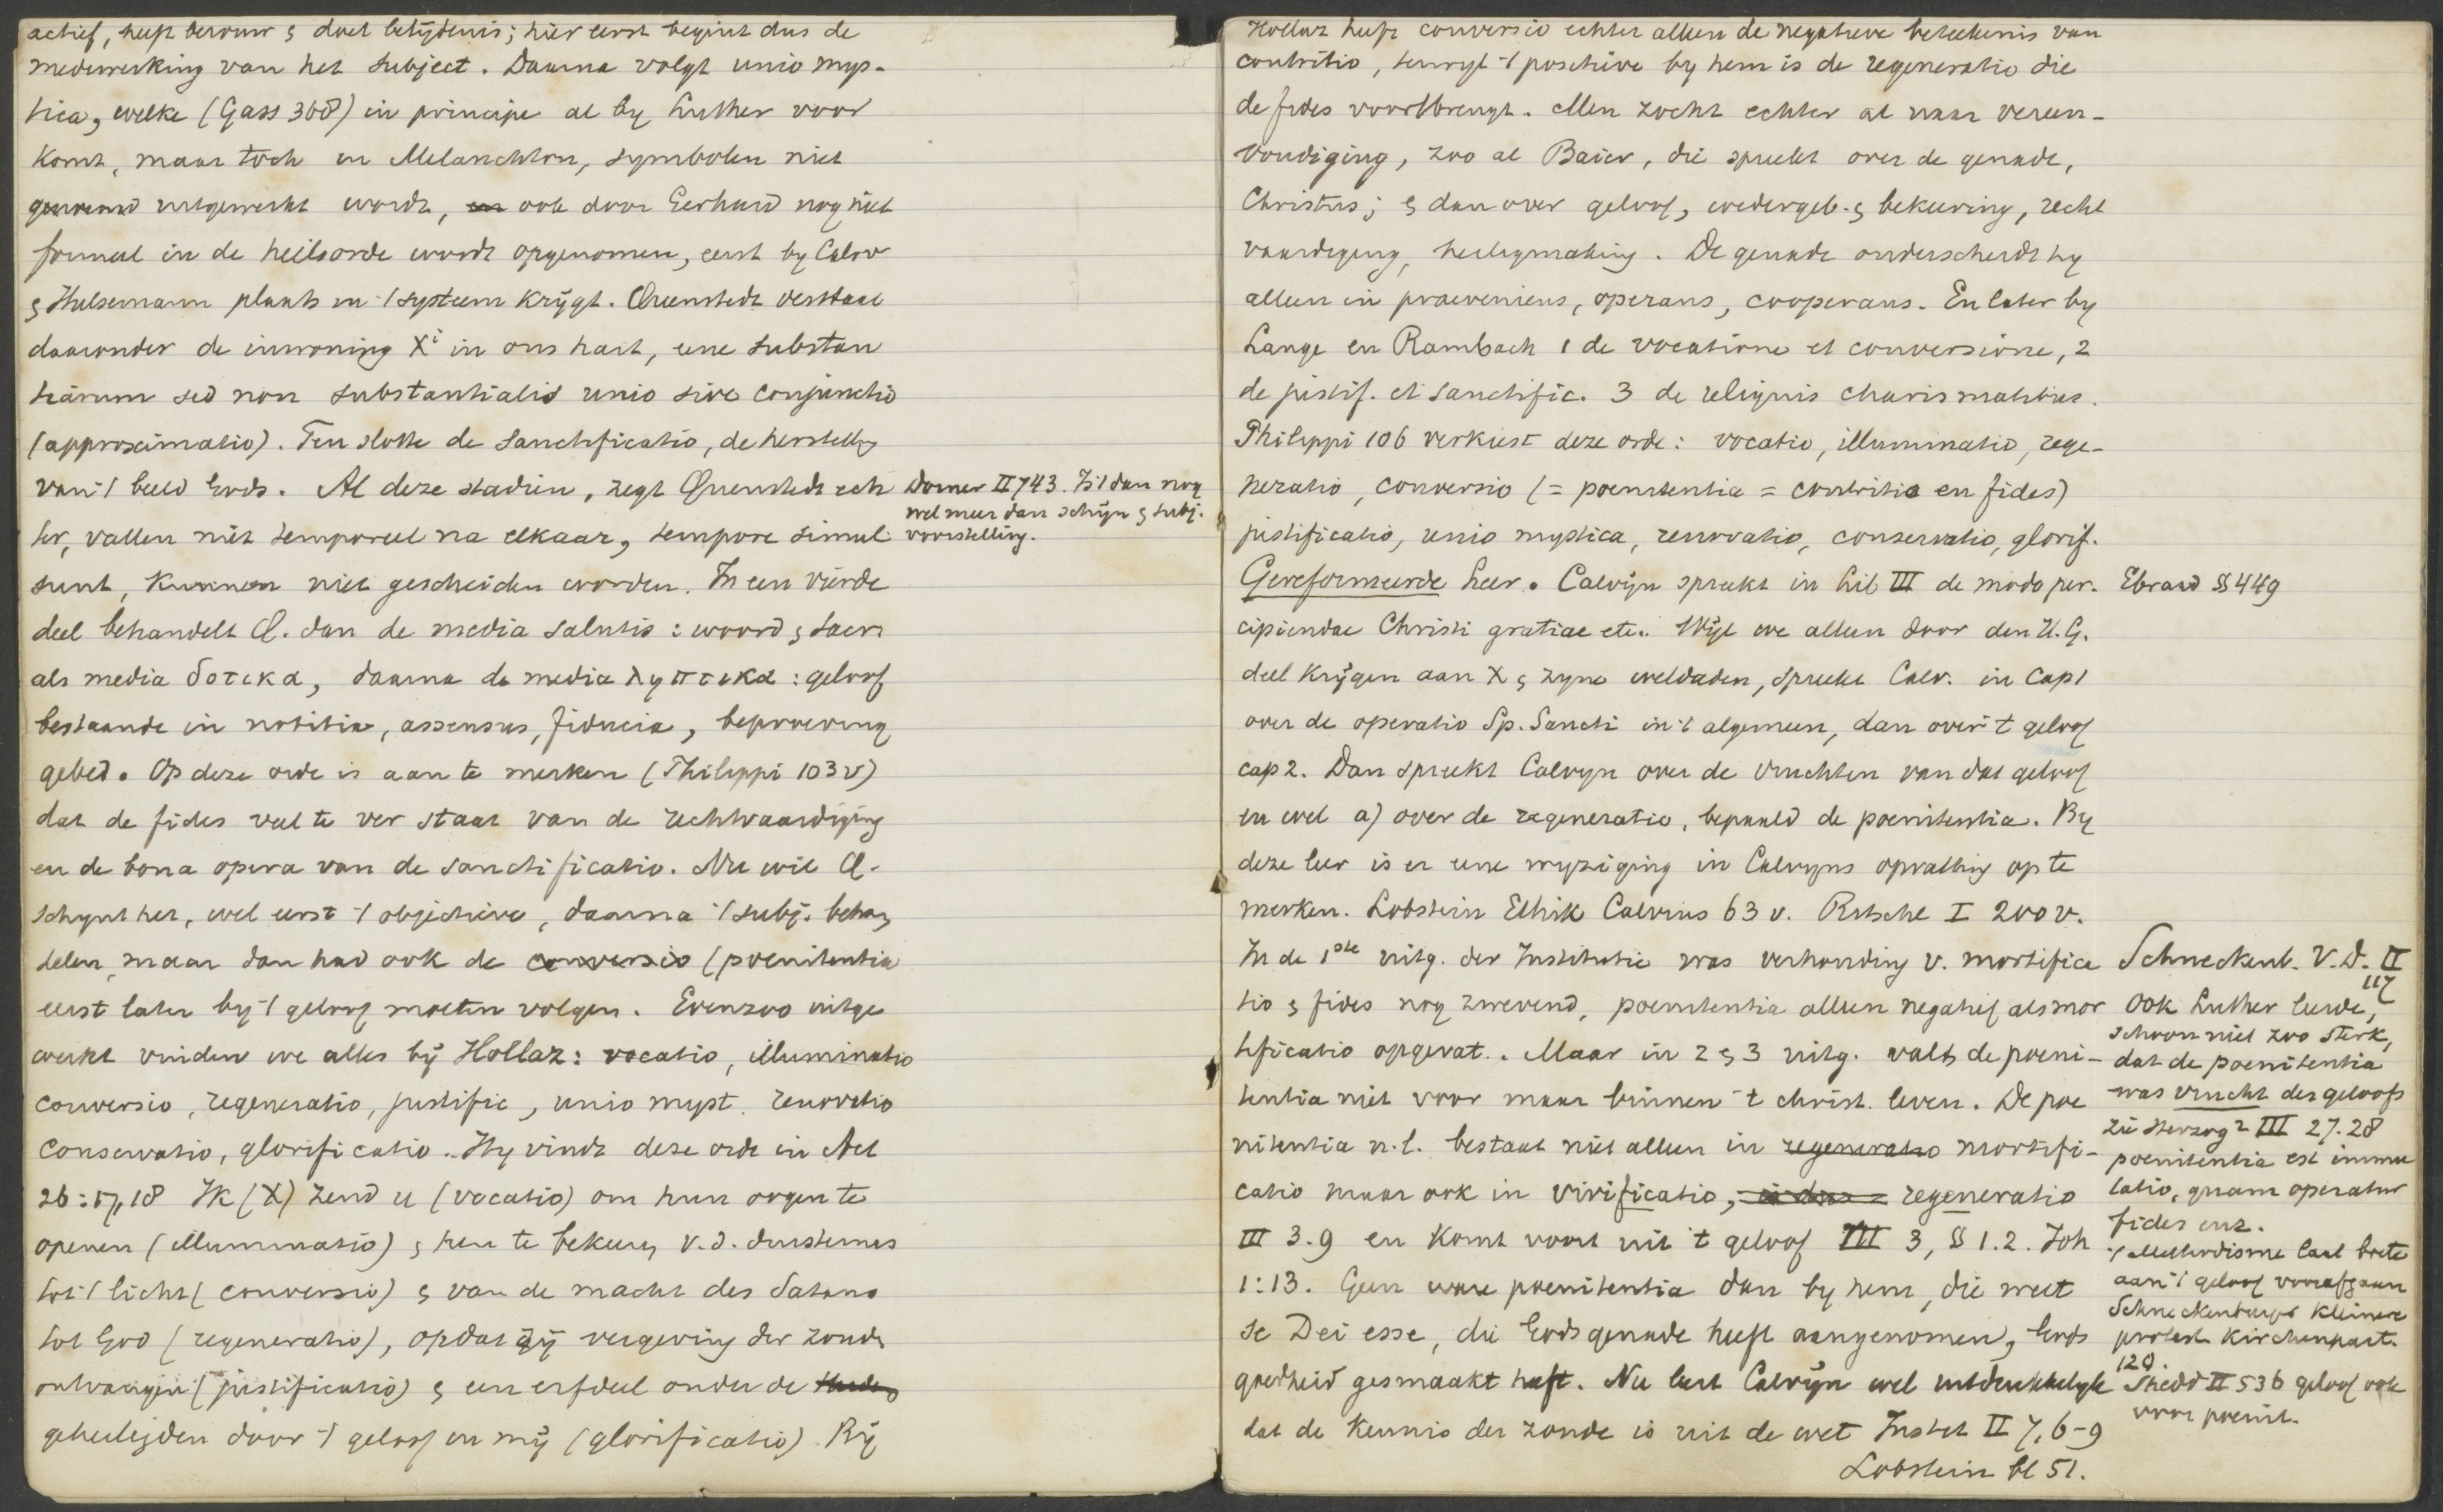 actief, heeft berouw & doet belijdenis; hier eerst begint dus de
medewerking van het subject. Daarna volgt unio mys-
tica, welke (Gass 368) in principe al by Luther voor
komt, maar toch in Melanchton, symbolen niet
genoemd uitgewerkt wordt, en ook door Gerhard nog niet
formeel in de heilsorde wordt opgenomen, eerst by Calov
& Hulsemann plaats in 't systeem krijgt. Quenstedt verstaat
daaronder de inwoning Xi in ons hart, eene substan
tiarum sed non substantialis unio sive conjunctio
(approximatio). Ten slotte de sanctificatio, de herstelling
van 't beeld Gods. Al deze stadien, zegt Quenstedt ech
ter, vallen niet temporeel na elkaar, tempore simul
sunt, kunnen niet gescheiden worden. In een vierde
deel behandelt Q. dan de media salutis: woord & sacr.
als media δοτικα, daarna de media ληπτικα: geloof
bestaande in notitia, assensus, fiducia, beproeving
gebed. Op deze orde is aan te merken (Philippi 103 v)
dat de fides veel te ver staat van de rechtvaardiging
en de bona opera van de sanctificatio. Nu wil Q.
schynt het, wel eerst 't objectieve, daarna 't subj. behan
delen, maar dan had ook de conversio (poenitentia
eerst later by 't geloof moeten volgen. Evenzoo uitge
werkt vinden we alles bij Hollaz: vocatio, illuminatio
conversio, regeneratio, justific, unio myst. renovatio
conservatio, glorificatio. Hy vindt deze orde in Act
26:17,18 Ik (X) zend u (vocatio) om hun oogen te
openen (illuminatio) & hen te bekeeren v. d. duisternis
tot 't licht (conversio) & van de macht des Satans
tot God (regeneratio), opdat zij vergeving der zonde
ontvangen (justificatio) & een erfdeel onder de
geheiligden door 't geloof in mij (glorificatio). Bij
Dorner II 743. Is 't dan nog
wel meer dan schijn & subj.
voorstelling.
Hollaz heeft conversio echter alleen de negatieve beteekenis van
contritio, terwyl 't positieve by hem is de regeneratio die
de fides voortbrengt. Men zocht echter al naar vereen-
voudiging, zoo al Baier, die spreekt over de genade,
Christus; & dan over geloof, wedergeb. & bekeering, recht
vaardiging, heiligmaking. De genade onderscheidt hy
alleen in praeveniens, operans, cooperans. En later by
Lange en Rambach 1 de vocatione et conversione, 2
de justif. et sanctific. 3 de reliquis charismatibus.
Philippi 106 verkiest deze orde: vocatio, illuminatio, rege-
neratio, conversio (= poenitentia = contritio en fides)
justificatio, unio mystica, renovatio, conservatio, glorif.
Gereformeerde Leer. Calvijn spreekt in Lib III de modo per-
cipiendae Christi gratiae etc. Wijl we alleen door den H. G.
deel krijgen aan X & zyne weldaden, spreekt Calv. in cap 1
over de operatio Sp. Sancti in 't algemeen, dan over 't geloof
cap 2. Dan spreekt Calvyn over de vruchten van dat geloof
en wel a) over de regeneratio, bepaald de poenitentia. By
deze leer is er eene wyziging in Calvyns opvatting op te
merken. Lobstein Ethik Calvins 63 v. Ritschl I 200 v.
In de 1ste uitg. der Institutie was verhouding v. mortifica
tio & fides nog zwevend, poenitentia alleen negatief als mor
tificatio opgevat. Maar in 2 & 3 uitg. valt de poeni-
tentia niet voor maar binnen 't christ. leven. De poe
nitentia n.l. bestaat niet alleen in regeneratio mortifi-
catio maar ook in vivificatio, regeneratio
III 3.9 en komt voort uit 't geloof III 3, § 1.2. Joh
1:13. Geen ware poenitentia dan by hem, die weet
se Dei esse, die Gods genade heeft aangenomen, Gods
goedheid gesmaakt heeft. Nu leert Calvijn wel uitdrukkelyk
dat de kennis der zonde is uit de wet Instit II 7, 6-9
Lobstein bl 51.
Ebrard § 449
Schneckenb. V. D. II
117
Ook Luther leerde,
schoon niet zoo sterk,
dat de poenitentia
was vrucht des geloofs
zie Herzog² III 27. 28
poenitentia est immu
tatio, quam operatur
fides enz.
't Methodisme laat boete
aan 't geloof voorafgaan
Schneckenburger kleinere
protest. Kirchenpart.
120.
Shedd II 536 geloof ook
voor poenit.